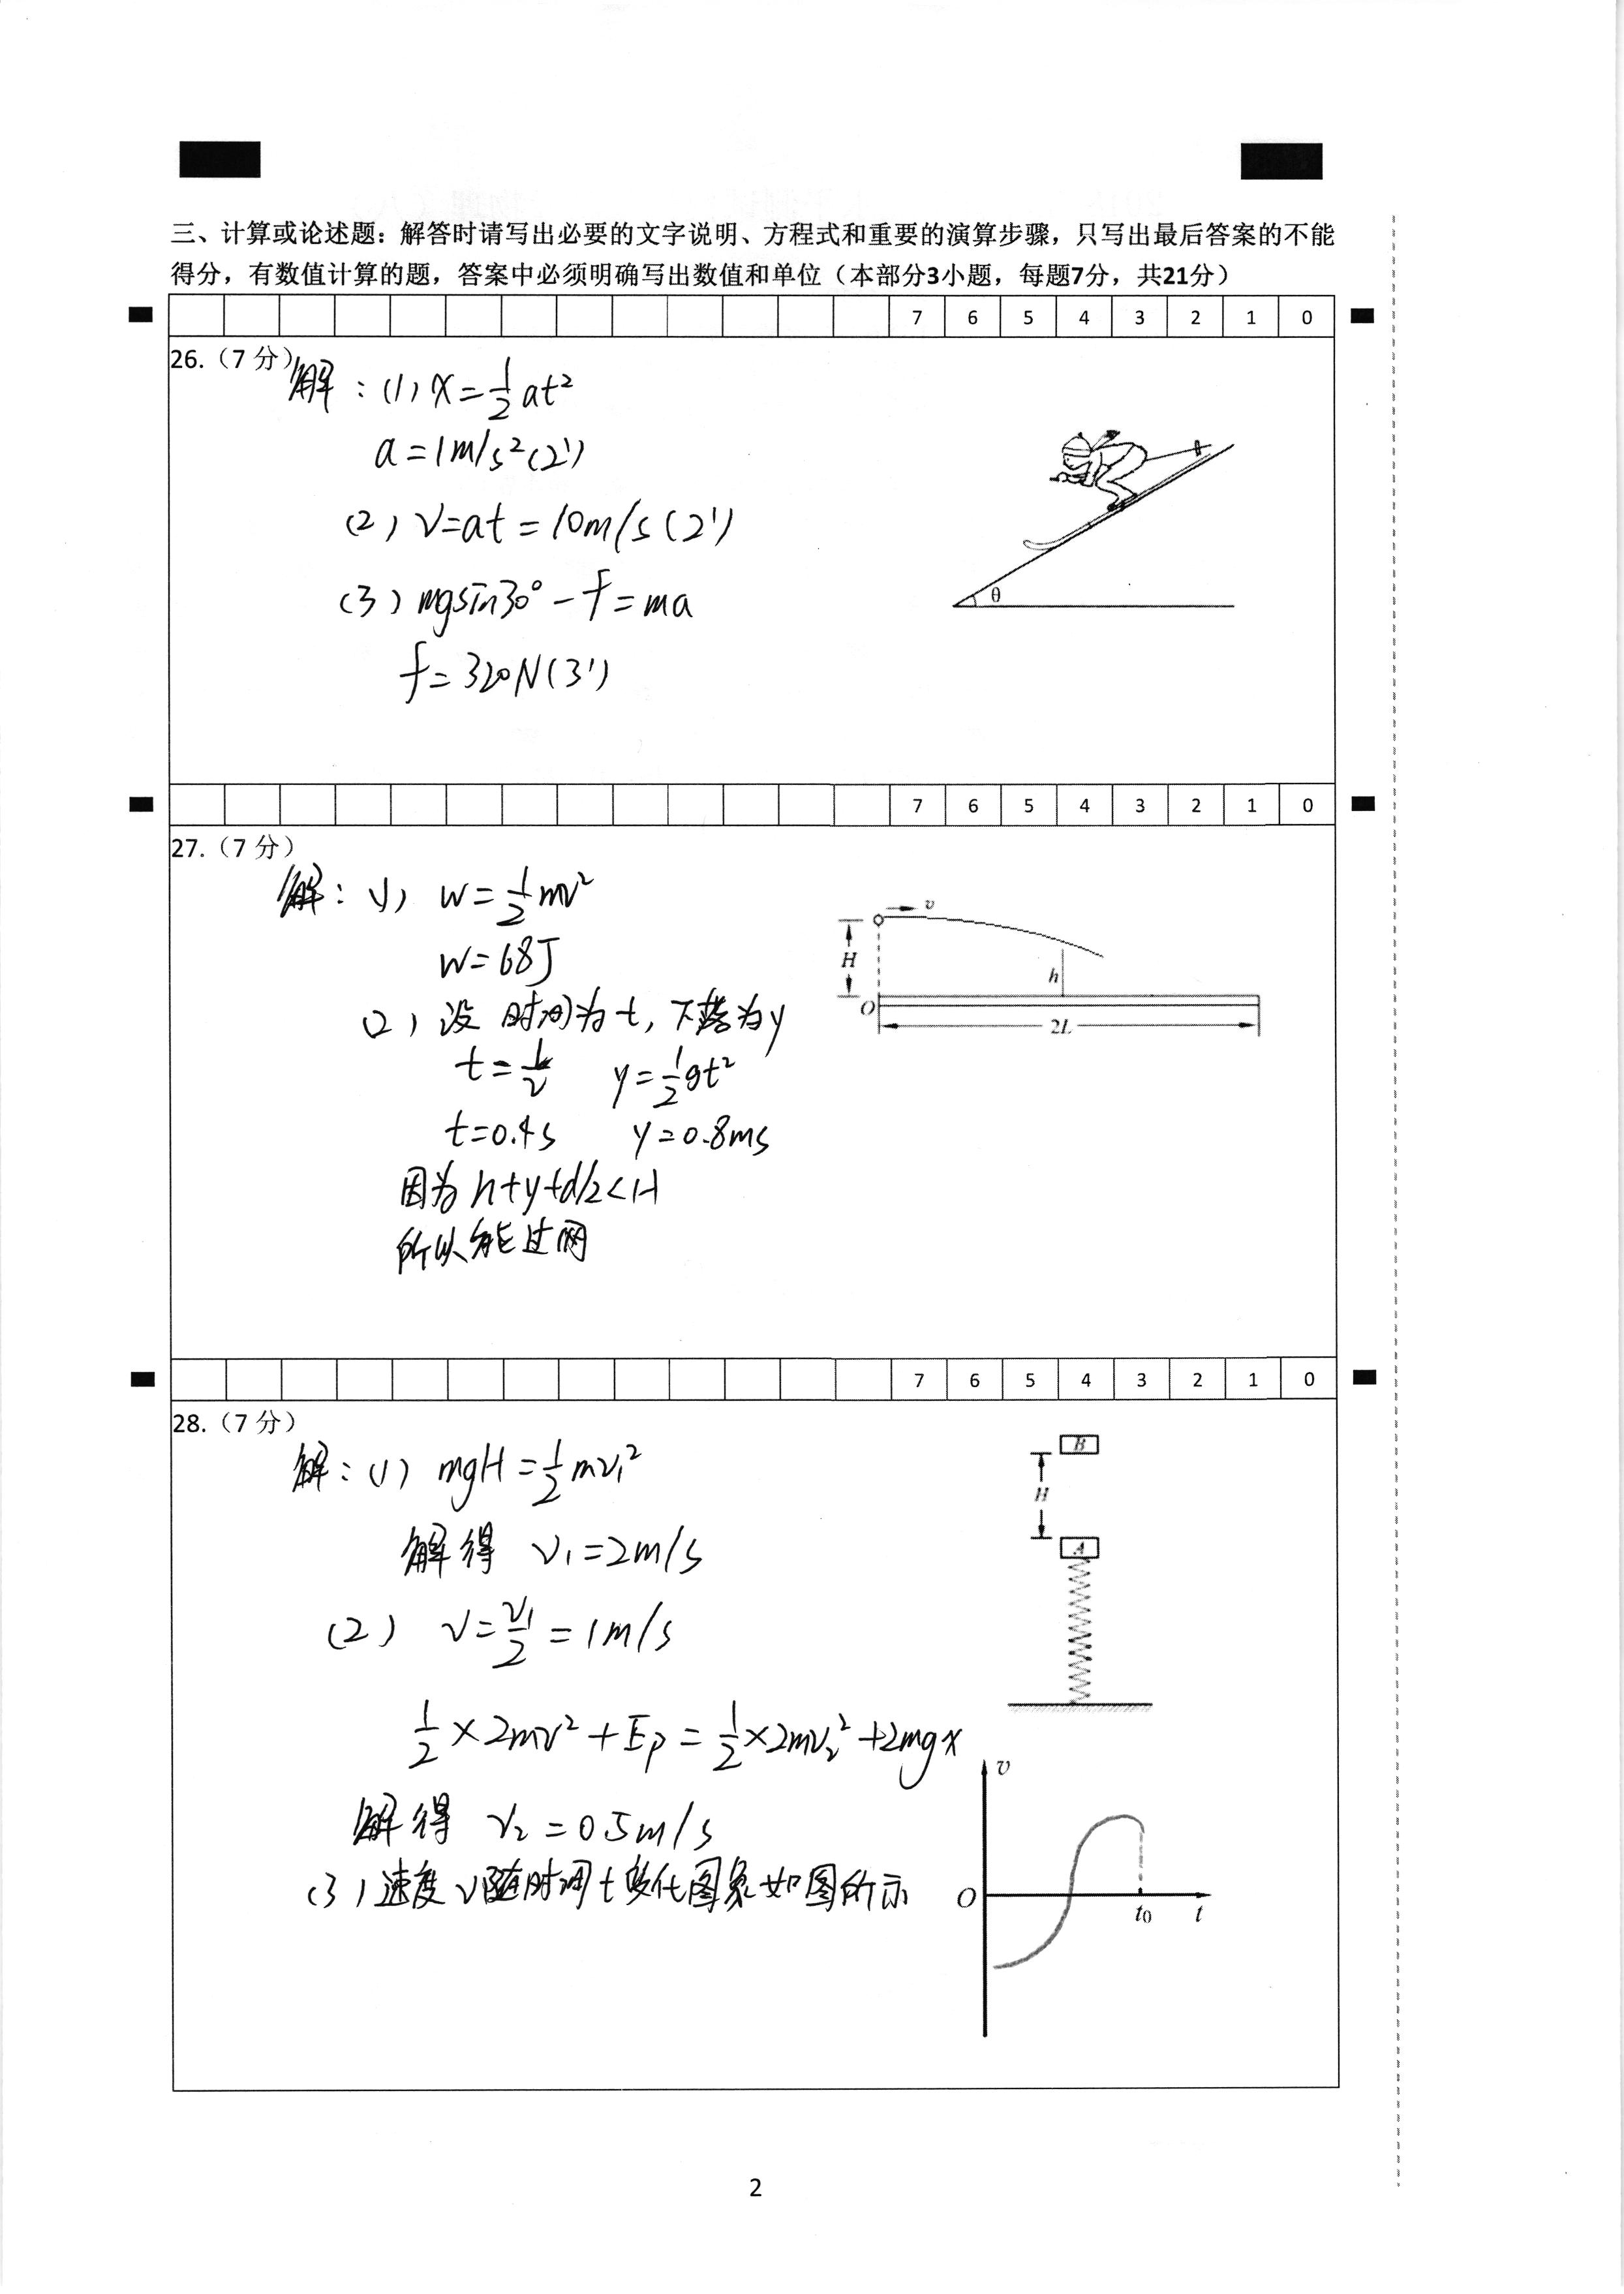 三、计算或论述题：解答时请写出必要的文字说明、方程式和重要的演算步骤，只写出最后答案的不能
得分，有数值计算的题，答案中必须明确写出数值和单位（本部分3小题，每题7分，共21分）
7 6 5 4 3 2 1 0
26.（7 分）
解：(1) x=½at²
a=1m/s²(2')
(2) v=at=10m/s(2')
(3) mgsin30°-f=ma
f=320N(3')
θ
7 6 5 4 3 2 1 0
27.（7 分）
解：(1) W=½mv²
W=68J
(2) 设 时间为t，下落为y
t=L/v y=½gt²
t=0.4s y=0.8ms
因为h+y+d/2<H
所以能过网
v
H
h
O
2L
7 6 5 4 3 2 1 0
28.（7 分）
解：(1) mgH=½mv₁²
解得 v₁=2m/s
(2) v=v₁/2=1m/s
½×2mv²+Ep=½×2mv₂²+2mgx
解得 v₂=0.5m/s
(3)速度v随时间t变化图象如图所示
B
H
A
v
O
t₀ t
2